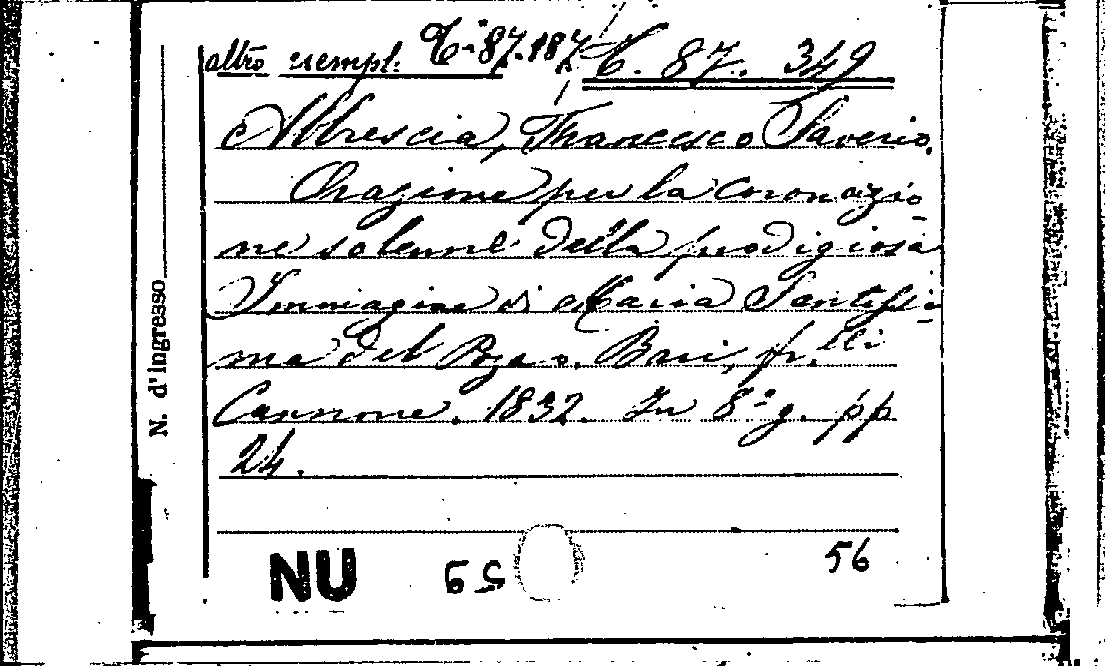 altro esempl: C. 87. 187 C. 87. 349
Abbrescia, Francesco Saverio.
Orazione per la coronazio-
ne solenne della prodigiosa
Immagine di Maria Santissi-
ma del Pozzo. Bari, fr.lli
Cannone. 1832. In 8° g. pp
24.
N. d'Ingresso
NU 56